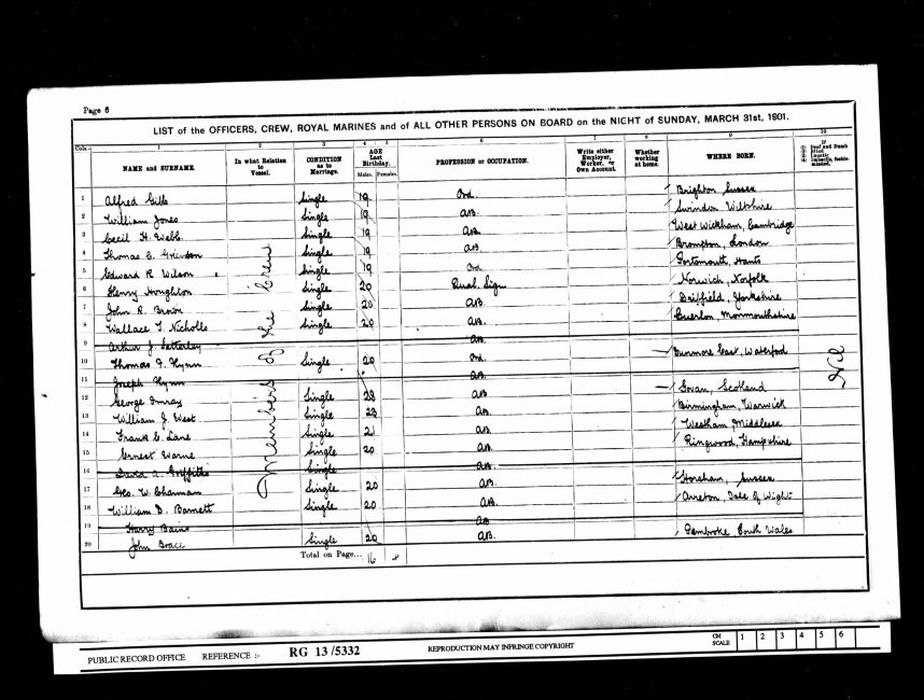 Page 6
LIST of the OFFICERS, CREW, ROYAL MARINES and of ALL OTHER PERSONS ON BOARD on the NIGHT of SUNDAY, MARCH 31st, 1901.
Cols. 1 2 3 4 5 6 7 8 9 10
NAME and SURNAME. In what Relation to Vessel. CONDITION as to Marriage. AGE Last Birthday. Males. Females. PROFESSION or OCCUPATION. Write either Employer, Worker, or Own Account. Whether working at home. WHERE BORN.
Members of the Crew
Nil
1 Alfred Single 19 Ord. Brighton Sussex
2 William Jones Single 19 AB. Swindon Wiltshire
3 Cecil H. Webb Single 19 AB. West Wickham, Cambridge
4 Thomas E. Grierson Single 19 AB. Brompton, London
5 Edward R. Wilson Single 19 Ord. Portsmouth, Hants
6 Henry Houghton Single 20 Qual. Sig. Norwich, Norfolk
7 John R. Brown Single 20 AB. Driffield, Yorkshire
8 Wallace T. Nicholls Single 20 AB. Monmouthshire
9 Arthur J. AB.
10 Thomas Flynn Single 20 Ord. Dunmore East, Waterford
11 Joseph Flynn AB.
12 George Imray Single 23 AB. Govan, Scotland
13 William J. West Single 23 AB. Birmingham, Warwick
14 Frank C. Lane Single 21 AB. Middlesex
15 Ernest Warne Single 20 AB. Ringwood, Hampshire
16 David A. Griffiths Single AB.
17 Geo. W. Charman Single 20 AB. Horsham, Sussex
18 William D. Barnett Single 20 AB. Arreton, Isle of Wight
19 Harry Bains AB.
20 John Single 20 AB. Pembroke South Wales
Total on Page... 16
PUBLIC RECORD OFFICE REFERENCE :- RG 13/5332 REPRODUCTION MAY INFRINGE COPYRIGHT CM SCALE 1 2 3 4 5 6